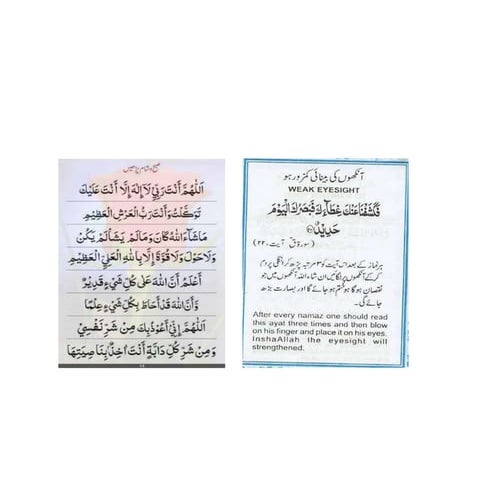 صبح و شام پڑھیں
اَللّٰهُمَّ اَنْتَ رَبِّيْ لَآ اِلٰهَ اِلَّا اَنْتَ عَلَيْكَ
تَوَكَّلْتُ وَاَنْتَ رَبُّ الْعَرْشِ الْعَظِيْمِ
مَاشَآءَ اللّٰهُ كَانَ وَمَا لَمْ يَشَأْ لَمْ يَكُنْ
وَلَاحَوْلَ وَلَا قُوَّةَ اِلَّا بِاللّٰهِ الْعَلِيِّ الْعَظِيْمِ
اَعْلَمُ اَنَّ اللّٰهَ عَلٰى كُلِّ شَيْءٍ قَدِيْرٌ
وَّاَنَّ اللّٰهَ قَدْ اَحَاطَ بِكُلِّ شَيْءٍ عِلْمًا
اَللّٰهُمَّ اِنِّيْ اَعُوْذُ بِكَ مِنْ شَرِّ نَفْسِيْ
وَمِنْ شَرِّ كُلِّ دَآبَّةٍ اَنْتَ اٰخِذٌۢ بِنَاصِيَتِهَا
آنکھوں کی بینائی کمزور ہو
WEAK EYESIGHT
فَكَشَفْنَا عَنْكَ غِطَآءَكَ فَبَصَرُكَ الْيَوْمَ
حَدِيْدٌ
(سورۃ قٓ آیت ۲۲)
ہر نماز کے بعد اس آیت کو ۳ مرتبہ پڑھ کر انگلی پر دم
کرکے آنکھوں پر لگائیں ان شاء اللہ آنکھوں میں جو
نقصان ہوگا وہ ختم ہو جائے گا اور بصارت بڑھ
جائے گی۔
After every namaz one should read
this ayat three times and then blow
on his finger and place it on his eyes.
InshaAllah the eyesight will
strengthened.